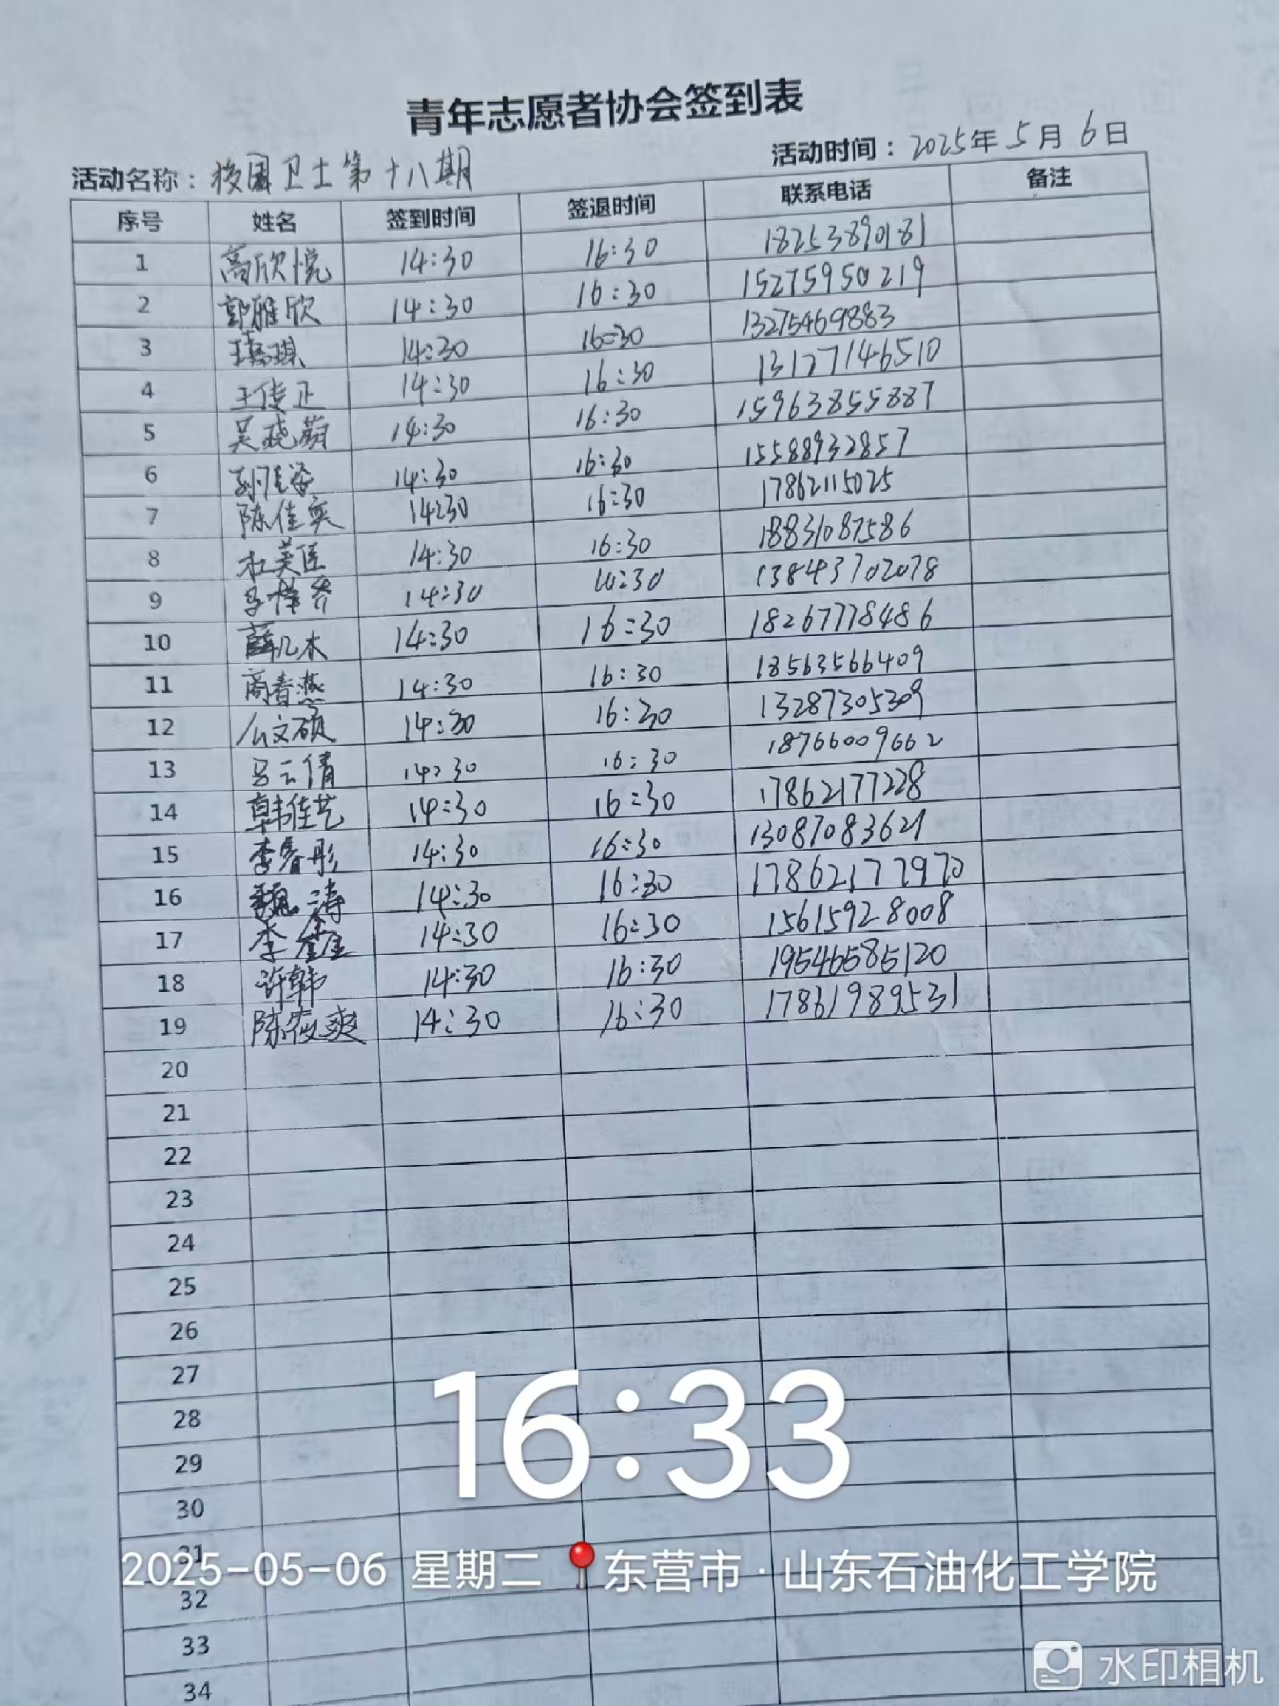 青年志愿者协会签到表
活动名称：校园卫士第十八期 活动时间：2025年5月6日
序号 姓名 签到时间 签退时间 联系电话 备注
1 高欣悦 14:30 16:30 18253890181
2 郭雅欣 14:30 16:30 15275950219
3 14:30 16:30 13275469883
4 王传正 14:30 16:30 13127146510
5 吴晓蔚 14:30 16:30 15963855887
6 孙佳姿 14:30 16:30 15588932857
7 陈佳奕 14:30 16:30 17862115025
8 杜英臣 14:30 16:30 18831087586
9 14:30 16:30 13843702078
10 薛凡木 14:30 16:30 18267778486
11 商春燕 14:30 16:30 18563566409
12 公文硕 14:30 16:30 13287305309
13 马云倩 14:30 16:30 18766009662
14 韩佳艺 14:30 16:30 17862177228
15 李春彤 14:30 16:30 13087083621
16 魏涛 14:30 16:30 17862177970
17 李鑫 14:30 16:30 15615928008
18 许韩 14:30 16:30 19546585120
19 陈爽 14:30 16:30 17861989531
20
21
22
23
24
25
26
27
28
29
30
31
32
33
34
16:33
2025-05-06 星期二 东营市·山东石油化工学院
水印相机